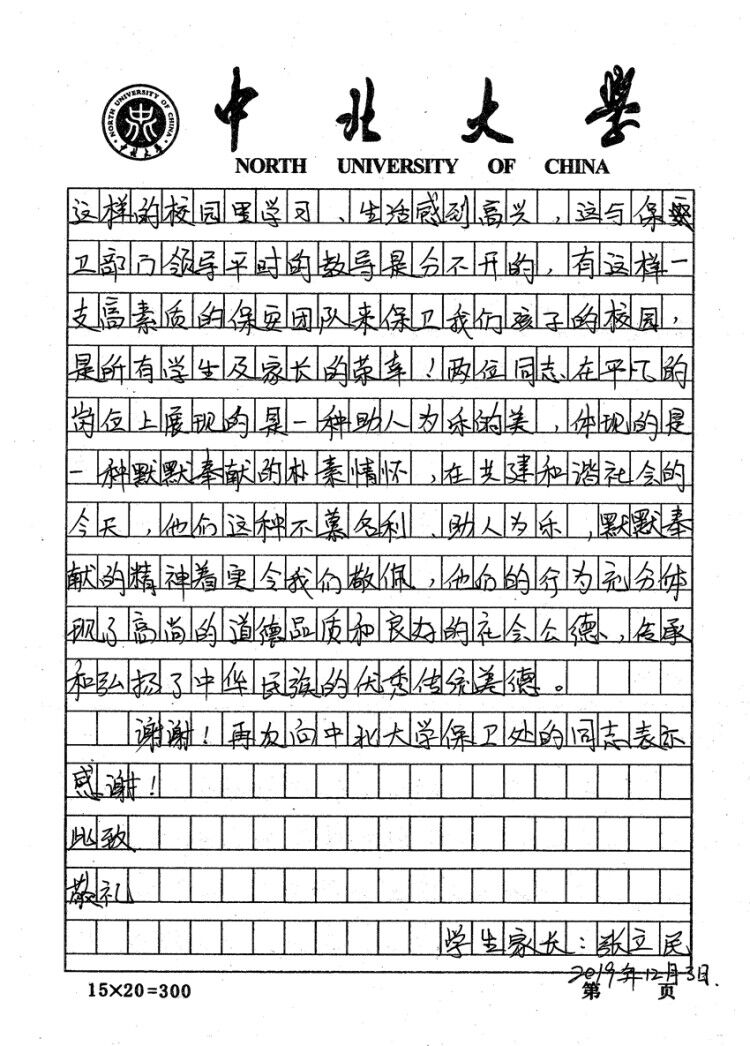 NORTH UNIVERSITY OF CHINA
中北大学
中北大学
NORTH UNIVERSITY OF CHINA
这样的校园里学习、生活感到高兴，这与保
卫部门领导平时的教导是分不开的，有这样一
支高素质的保安团队来保卫我们孩子的校园，
是所有学生及家长的荣幸！两位同志在平凡的
岗位上展现的是一种助人为乐的美，体现的是
一种默默奉献的朴素情怀，在共建和谐社会的
今天，他们这种不慕名利、助人为乐，默默奉
献的精神着实令我们敬佩，他们的行为充分体
现了高尚的道德品质和良好的社会公德、传承
和弘扬了中华民族的优秀传统美德。
谢谢！再次向中北大学保卫处的同志表示
感谢！
此致
敬礼
学生家长：张立民
2019年12月3日.
15×20=300
第 页